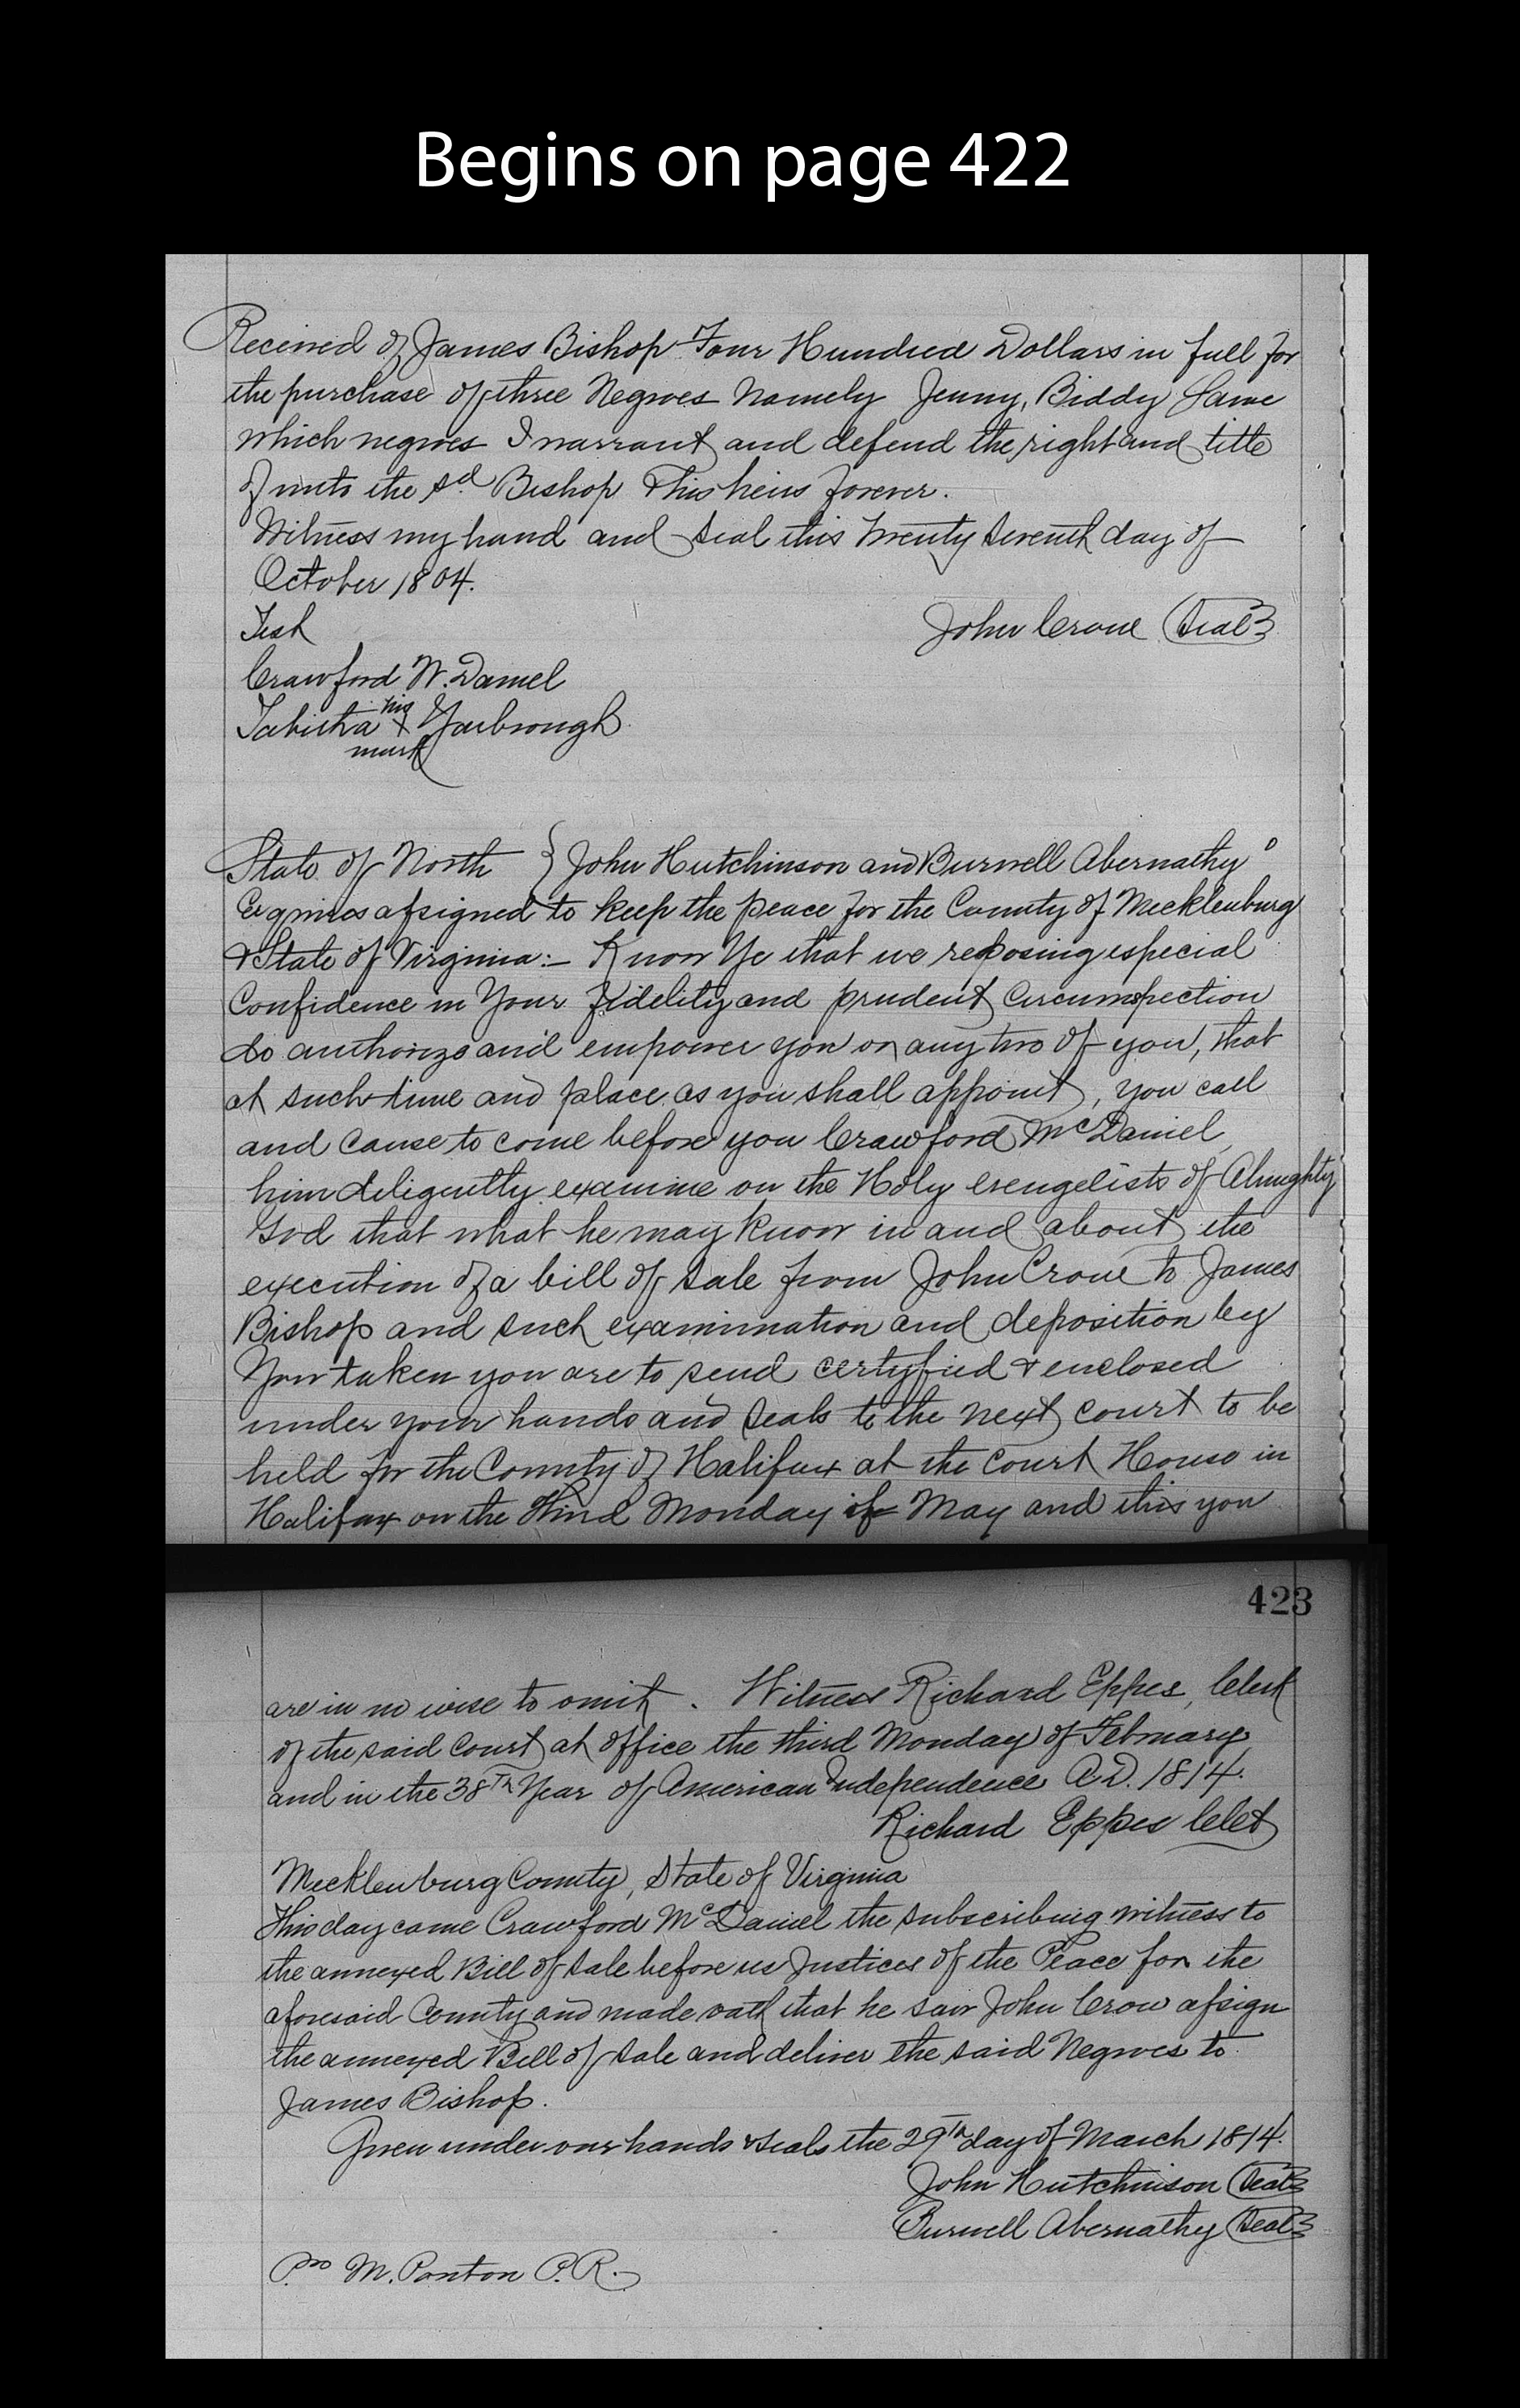 Begins on page 422
Received of James Bishop Four Hundred Dollars in full for
the purchase of three Negroes Namely Jenny, Biddy
which negroes I warrant and defend the right and title
of unto the sd Bishop & his heirs forever.
Witness my hand and seal this twenty seventh day of
October 1804.
Test
John Crowe (Seal)
Crawford W. Daniel
Tabitha his X mark Yarbrough
State of North } John Hutchinson and Burwell Abernathy
Esquires assigned to keep the peace for the County of Mecklenburg
& State of Virginia:- Know Ye that we reposing especial
Confidence in Your fidelity and prudent Circumspection
do authorize and empower you or any two of you, that
at such time and place as you shall appoint, you call
and cause to come before you Crawford McDaniel
him diligently examine on the Holy evengelists of Almighty
God that what he may know in and about the
execution of a bill of sale from John Crowe to James
Bishop and such examination and deposition by
You taken you are to send certyfied & enclosed
under your hands and seals to the next court to be
held for the County of Halifax at the Court House in
Halifax on the third Monday of May and this you
423
are in no wise to omit. Witness Richard Eppes, Clerk
of the said Court at office the third Monday of February
and in the 38th Year of American Independence A.D. 1814.
Richard Eppes Clet
Mecklenburg County, State of Virginia
This day came Crawford McDaniel the subscribing witness to
the annexed Bill of Sale before us Justices of the Peace for the
aforesaid County and made oath that he saw John Crow assign
the annexed Bill of Sale and deliver the said Negroes to
James Bishop.
Given under our hands & seals the 29th day of March 1814.
John Hutchinson (Seal)
Burwell Abernathy (Seal)
M. Ponton P.R.